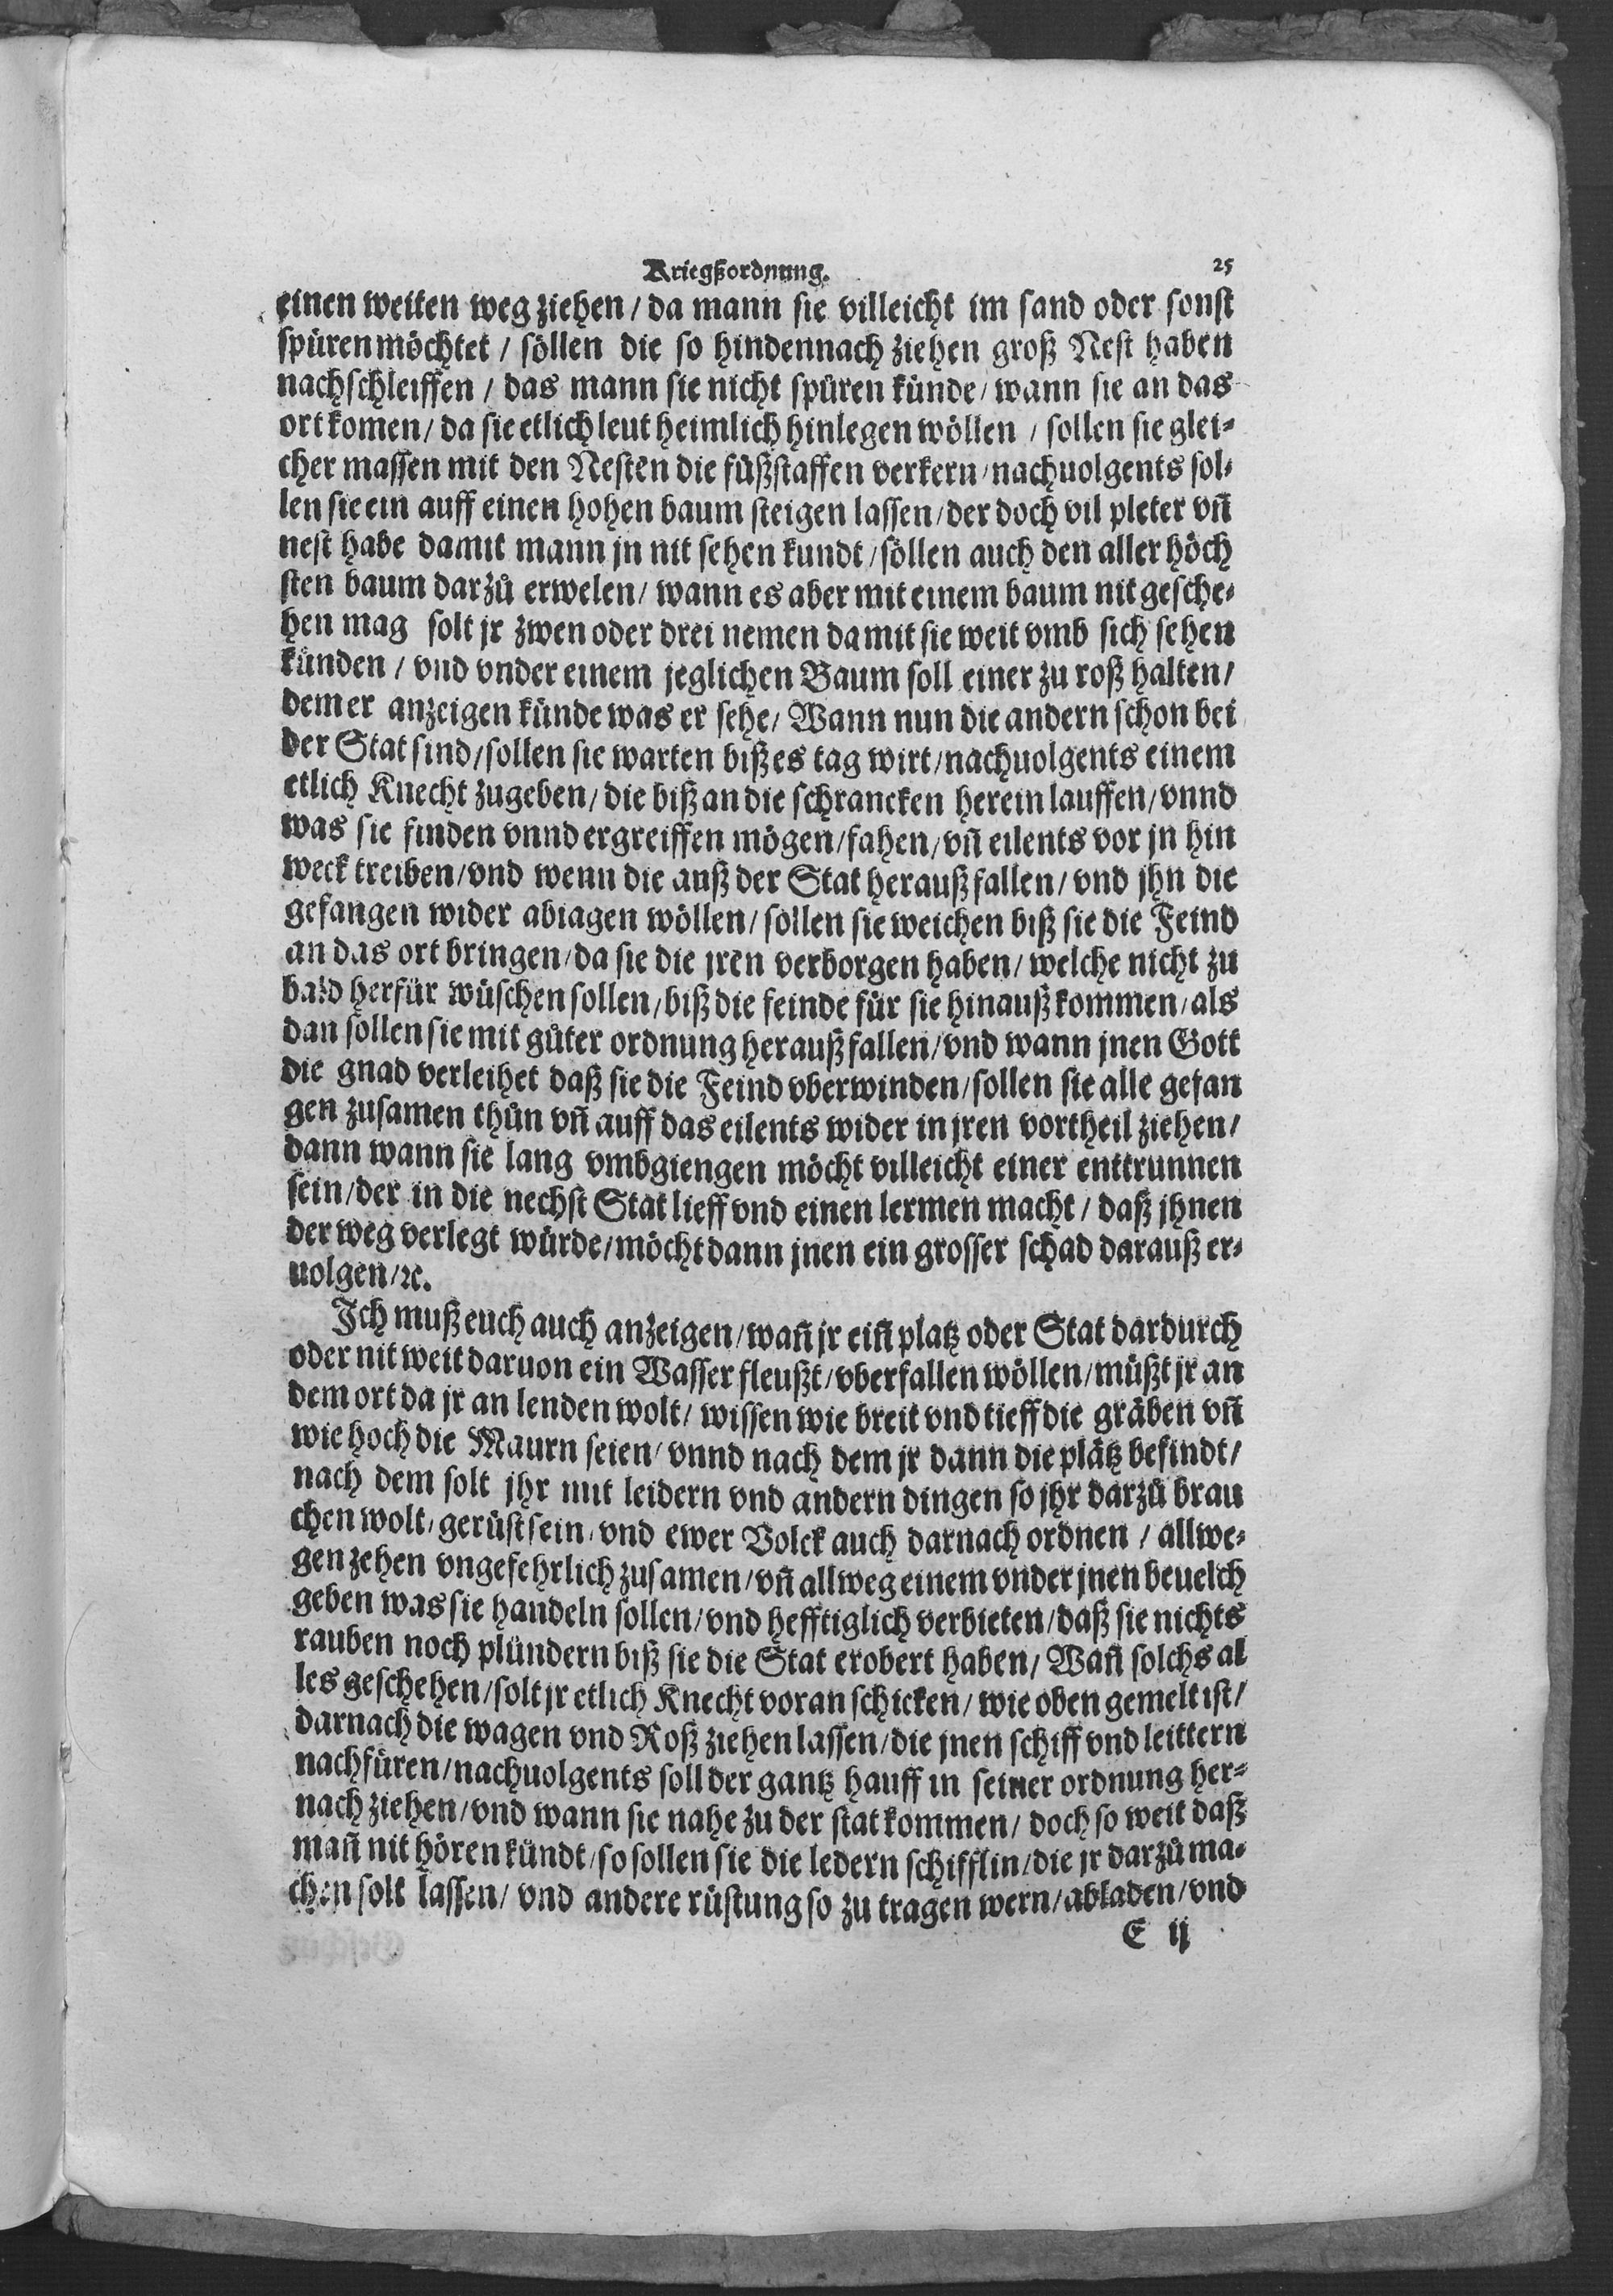 Kriegßordnung. 25
einen weiten weg ziehen / da mann sie villeicht im sand oder sonst
spüren möchtet / söllen die so hindennach ziehen groß Nest haben
nachschleiffen / das mann sie nicht spüren künde / wann sie an das
ort komen / da sie etlich leut heimlich hinlegen wöllen / sollen sie glei⸗
cher massen mit den Nestẽ die fůßstaffen verkern / nachuolgents sol⸗
len sie ein auff einen hohen baum steigen lassen / der doch vil pleter vñ
nest habe damit mann jn nit sehen kundt / söllen auch den aller höch
sten baum darzů erwelen / wann es aber mit einem baum nit gesche⸗
hen mag solt jr zwen oder drei nemen damit sie weit vmb sich sehen
künden / vnd vnder einem jeglichen Baum soll einer zu roß halten /
dem er anzeigen künde was er sehe / Wann nun die andern schon bei
der Stat sind / sollen sie warten biß es tag wirt / nachuolgents einem
etlich Knecht zugeben / die biß an die schrancken herein lauffen / vnnd
was sie finden vnnd ergreiffen mögen / fahen / vñ eilents vor jn hin
weck treiben / vnd wenn die auß der Stat herauß fallen / vnd jhn die
gefangen wider abiagen wöllen / sollen sie weichen biß sie die Feind
an das ort bringen / da sie die jren verborgen haben / welche nicht zu
bald herfür wüschen sollen / biß die feinde für sie hinauß kommen / als
dan sollen sie mit gůter ordnung herauß fallen / vnd wann jnen Gott
die gnad verleihet daß sie die Feind vberwinden / sollen sie alle gefan
gen zusamen thůn vñ auff das eilents wider in jren vortheil ziehen /
dann wann sie lang vmbgiengen möcht villeicht einer enttrunnen
sein / der in die nechst Stat lieff vnd einen lermen macht / daß jhnen
der weg verlegt würde / möcht dann jnen ein grosser schad darauß er⸗
uolgen / ꝛc.
Ich muß euch auch anzeigen / wañ jr eiñ platz oder Stat dardurch
oder nit weit daruon ein Wasser fleußt / vberfallen wöllen / müßt jr an
dem ort da jr an lenden wolt / wissen wie breit vnd tieff die gräben vñ
wie hoch die Maurn seien / vnnd nach dem jr dann die plätz befindt /
nach dem solt jhr mit leidern vnd andern dingen so jhr darzů brau
chen wolt / gerüst sein / vnd ewer Volck auch darnach ordnen / allwe⸗
gen zehen vngefehrlich zusamen / vñ allweg einem vnder jnen beuelch
geben was sie handeln sollen / vnd hefftiglich verbieten / daß sie nichts
rauben noch plündern biß sie die Stat erobert haben / Wañ solchs al
les geschehen / solt jr etlich Knecht voran schicken / wie oben gemelt ist /
darnach die wagen vnd Roß ziehen lassen / die jnen schiff vnd leittern
nachfüren / nachuolgents soll der gantz hauff in seiner ordnung her⸗
nach ziehen / vnd wann sie nahe zu der stat kommen / doch so weit daß
mañ nit hören kündt / so sollen sie die ledern schifflin / die jr darzů ma⸗
chen solt lassen / vnd andere rüstung so zu tragen wern / abladen / vnd
E ij